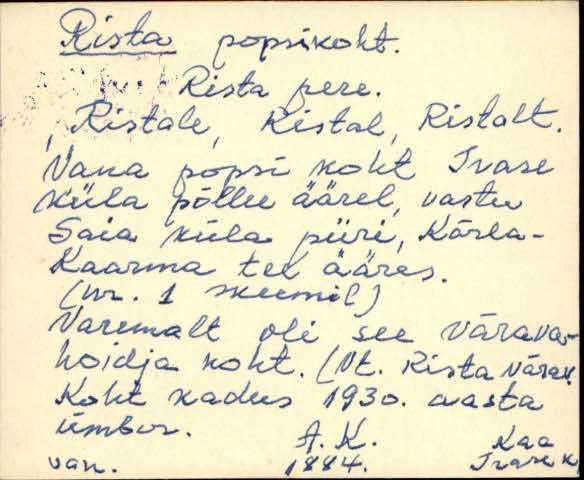 Rista popsikoht.
Rista pere.
Ristale, Ristal, Ristalt.
Vana popsi koht Irase
küla põllu äärel, vastu
Saia küla piiri, Kärla-
Kaarma tee ääres.
(nr. 1 skeemil)
Varemalt oli see värava-
hoidja koht. (Vt. Rista värav.
Koht kadus 1930. aasta
ümber.
A. K. Kaa
van. 1884. Irase k.